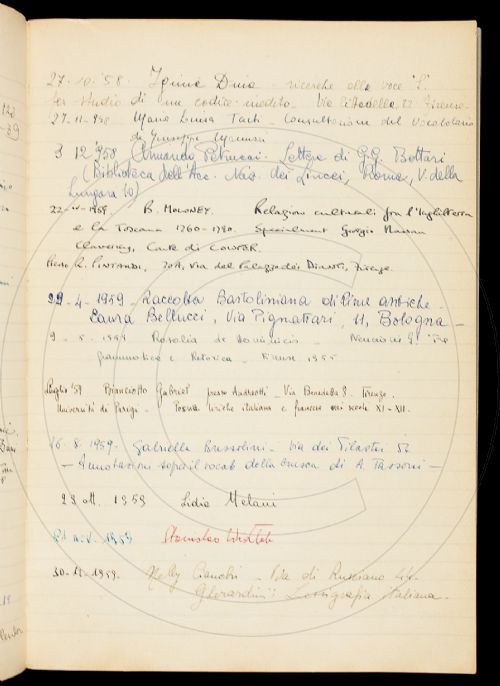 27-10-'58 Dina - ricerche alla voce "E.
per studio di un codice inedito - Via Cittadella 12 Firenze
27-11-958 Maria Luisa - Consultazione del Vocabolario
di Giuseppe
3 12 '958 (Armando Petrucci. Lettere di G.G. Bottari
(Biblioteca dell'Acc. Naz. dei Lincei, Roma, V. della
Lungara 10)
1959. B. MOLONEY. Relazioni culturali fra l'Inghilterra
e la Toscana 1760-1790. Giorgio Nassau
Clavering, Conte di COWPER.
R. PINTARDI, 20A, Via del Palazzo dei Diavoli, Firenze.
29-4-1959 - Raccolta Bartoliniana di Rime antiche -
Laura Bellucci, Via Pignattari, 11, Bologna -
9-5-1959 Rosalia de Dominicis -
grammatica e Retorica - Firenze 1955
Luglio '59 Gabriel presso Andreotti - Via Benedetta 8. Firenze.
Università di Parigi - Poesia lirica italiana e francese nei secoli XI-XII.
16-8-1959 - Gabriella Bussolini - Via dei Pilastri 52
- Annotazioni sopra il vocab. della Crusca di A. Tassoni -
29 ott. 1959 Lidia Melani
nov-1959 Stanislao
30-11-1959. Nelly - Via di Rusciano
Gherardini: Lessigrafia italiana.